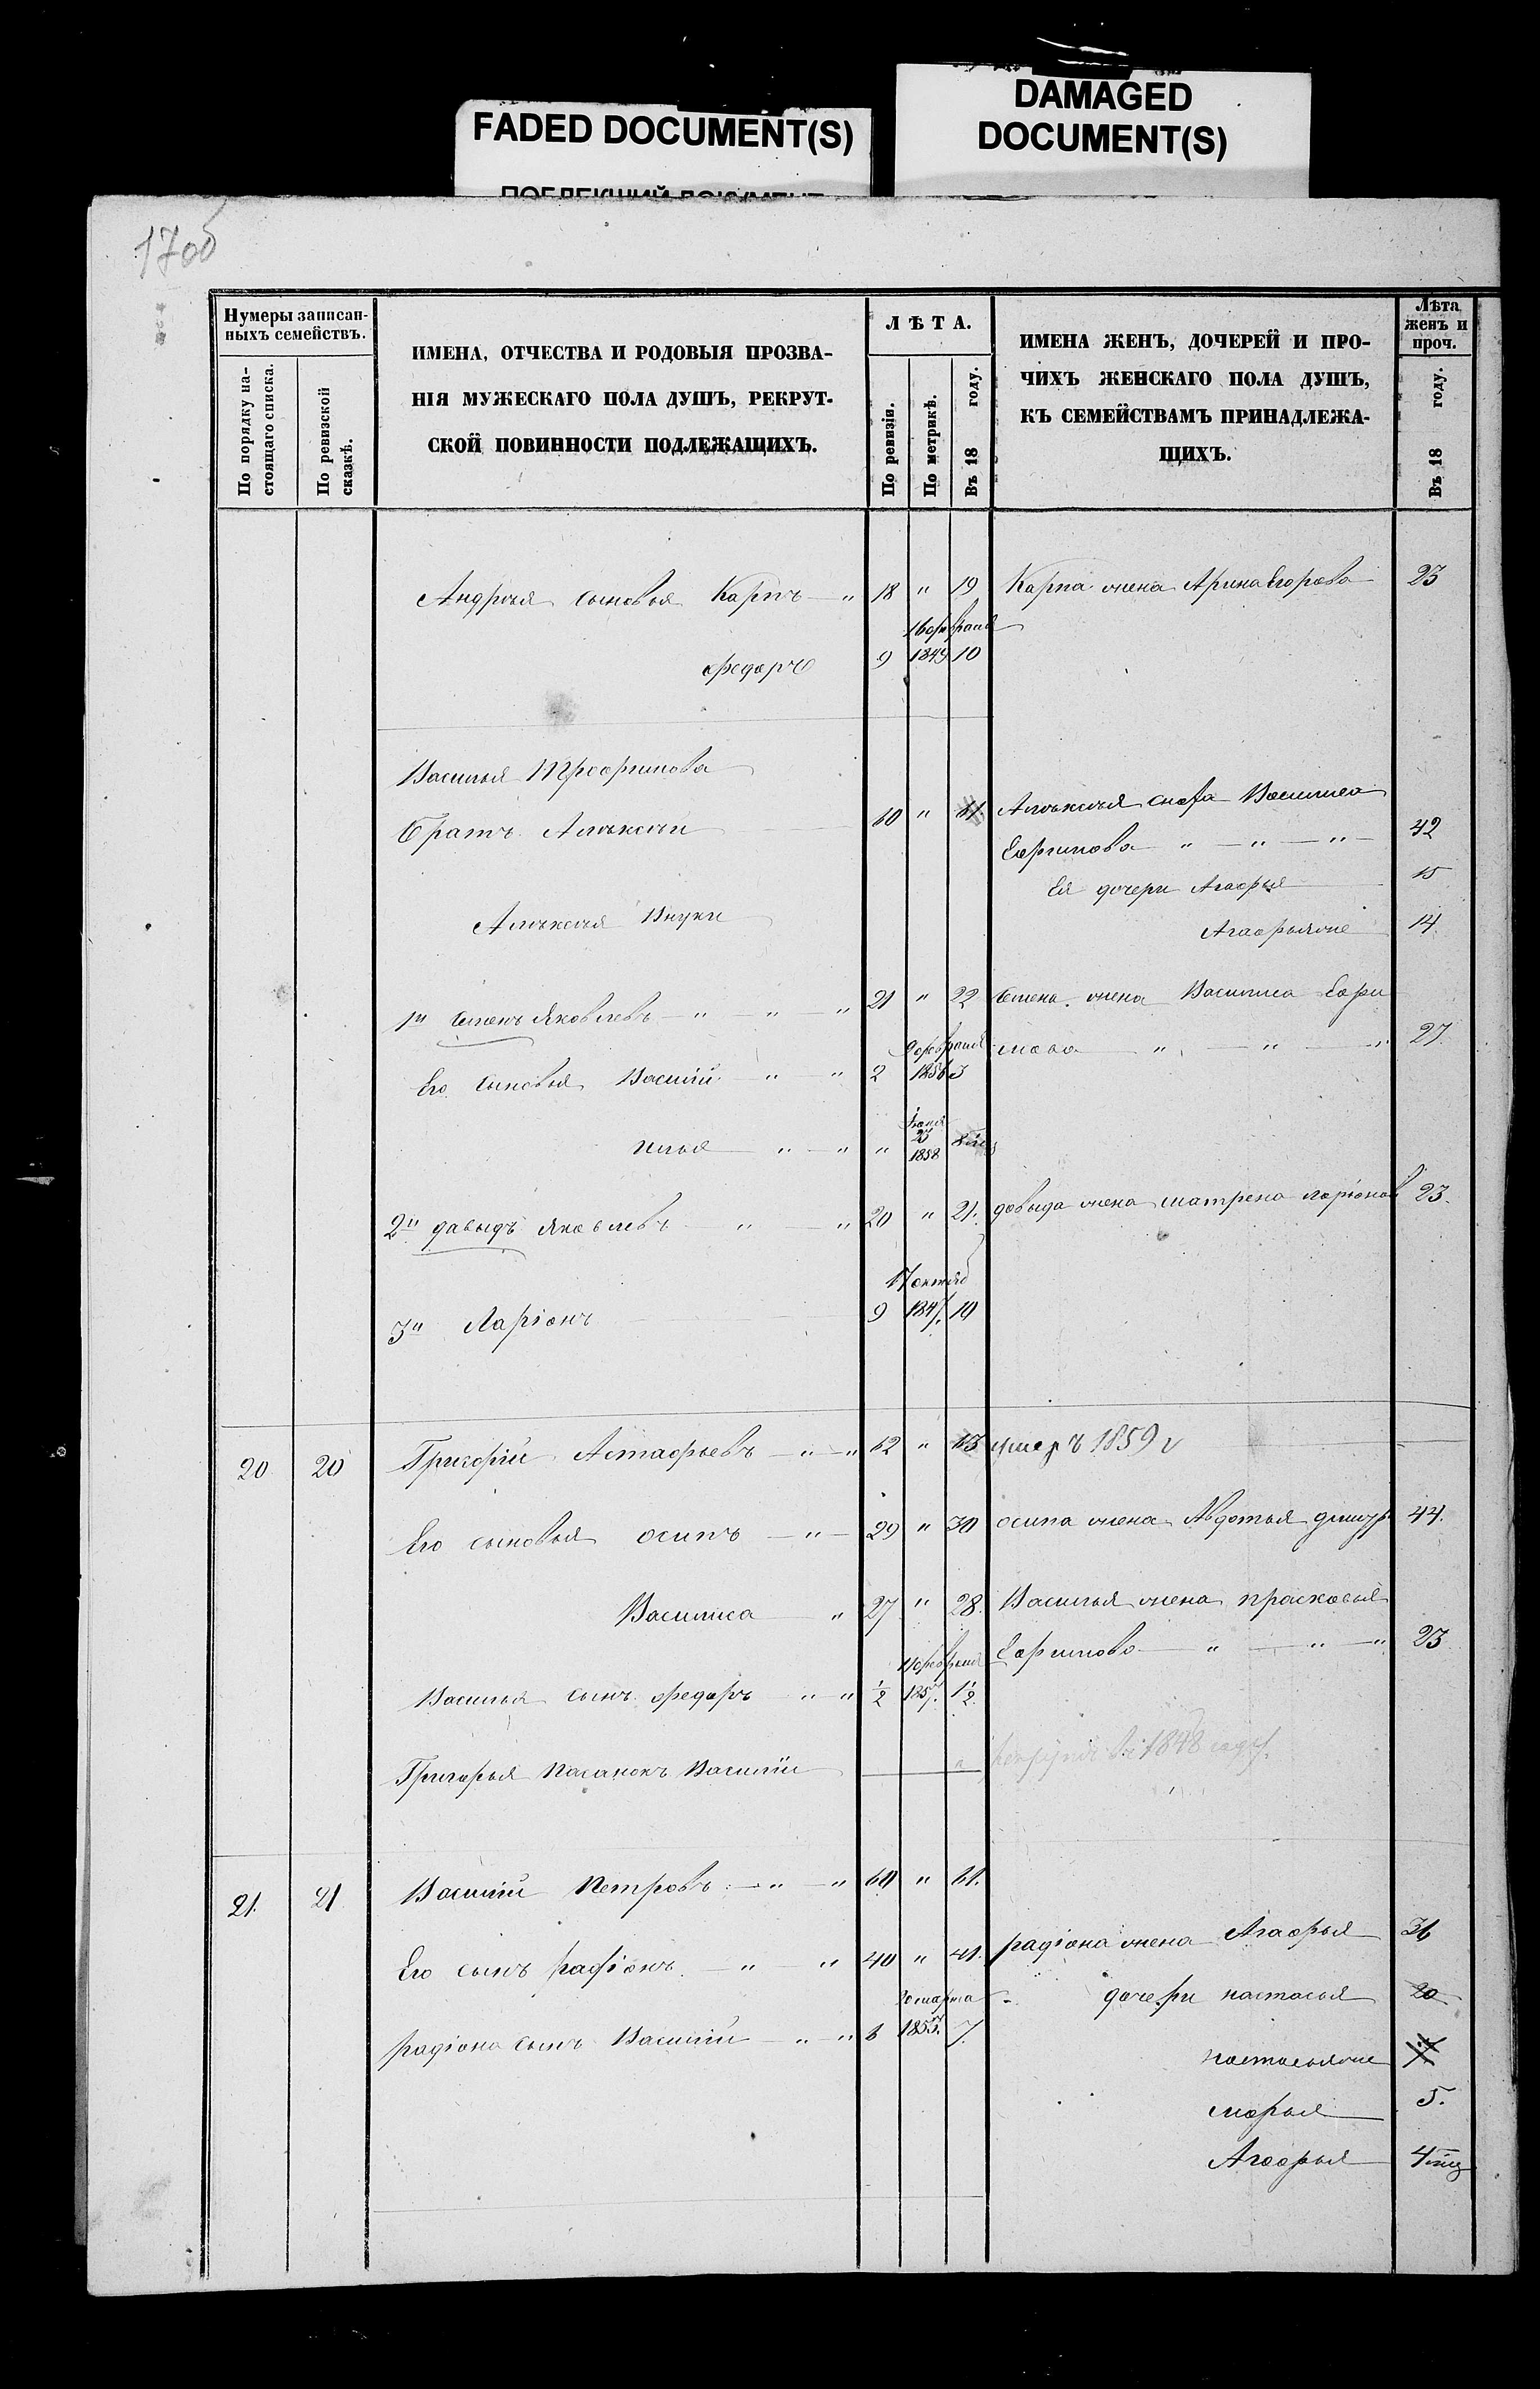 FADED DOCUMENT(S)
DAMAGED
DOCUMENT(S)
17об
Нумеры записан-
ныхъ семействъ.
По порядку на-
стоящаго списка.
По ревизской
сказкѣ.
ИМЕНА, ОТЧЕСТВА И РОДОВЫЯ ПРОЗВА-
НІЯ МУЖЕСКАГО ПОЛА ДУШЪ, РЕКРУТ-
СКОЙ ПОВИННОСТИ ПОДЛЕЖАЩИХЪ.
ЛѢТА.
По ревизіи.
По метрикѣ.
Въ 18 году.
ИМЕНА ЖЕНЪ, ДОЧЕРЕЙ И ПРО-
ЧИХЪ ЖЕНСКАГО ПОЛА ДУШЪ,
КЪ СЕМЕЙСТВАМЪ ПРИНАДЛЕЖА-
ЩИХЪ.
Лѣта
женъ и
проч.
Въ 18 году.
Андрея сыновья Карпъ — " 18 " 19 Карпа жена Арина Егорова 23
16 февраля
федоръ 9 1849 10
Василья Трофимова
братъ Алексѣй 60 " 61. Алексѣя сноха Василиса
Ефимова — " — " — " — 42
Ея дочери Агафья 15
Алексѣя Внуки
Агафья же 14.
1й Семенъ Яковлевъ — " — " — " 21 " 22 Семена жена Василиса Ефи
мова — " — " — " 27
9 февраля
Его сыновья Василій — " — " 2 1856 3
Илья — " — " " 1858
2й давыдъ Яковлевъ — " — " 20 " 21. давыда жена матрена ларіонов 23.
17 октяб
3й Ларіонъ 9 1847. 10
20 20 Григорій Астафьевъ — " — " 62 " 63 умеръ 1859 г
Его сыновья осипъ — " — 29 " 30 осипа жена Авдотья 44.
Василиса — " 27 " 28. Василья жена прасковья
Ефимова — " — " — " 23
11 февраля
Василья сынъ федоръ — " — " 1/2 1857. 1 1/2
Григорья Василій 1848 году.
21. 21 Василій Петровъ — " — " 60 " 61.
Его сынъ радіонъ — " — " 40 " 41. радіона жена Агафья 36
дочери настасья 20
марта
радіона сынъ Василій — " — " 6 1853. 7.
настасья же
марья 5.
Агафья 4 мѣц